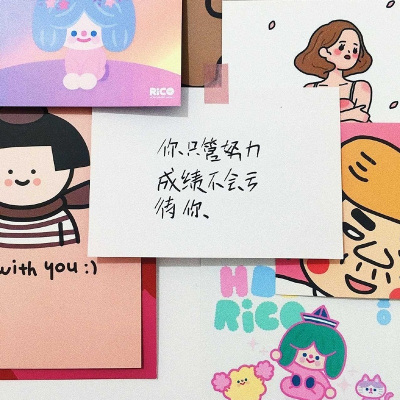 RiCO
你只管努力
成绩不会亏
待你、
with you :)
HO
RiCO